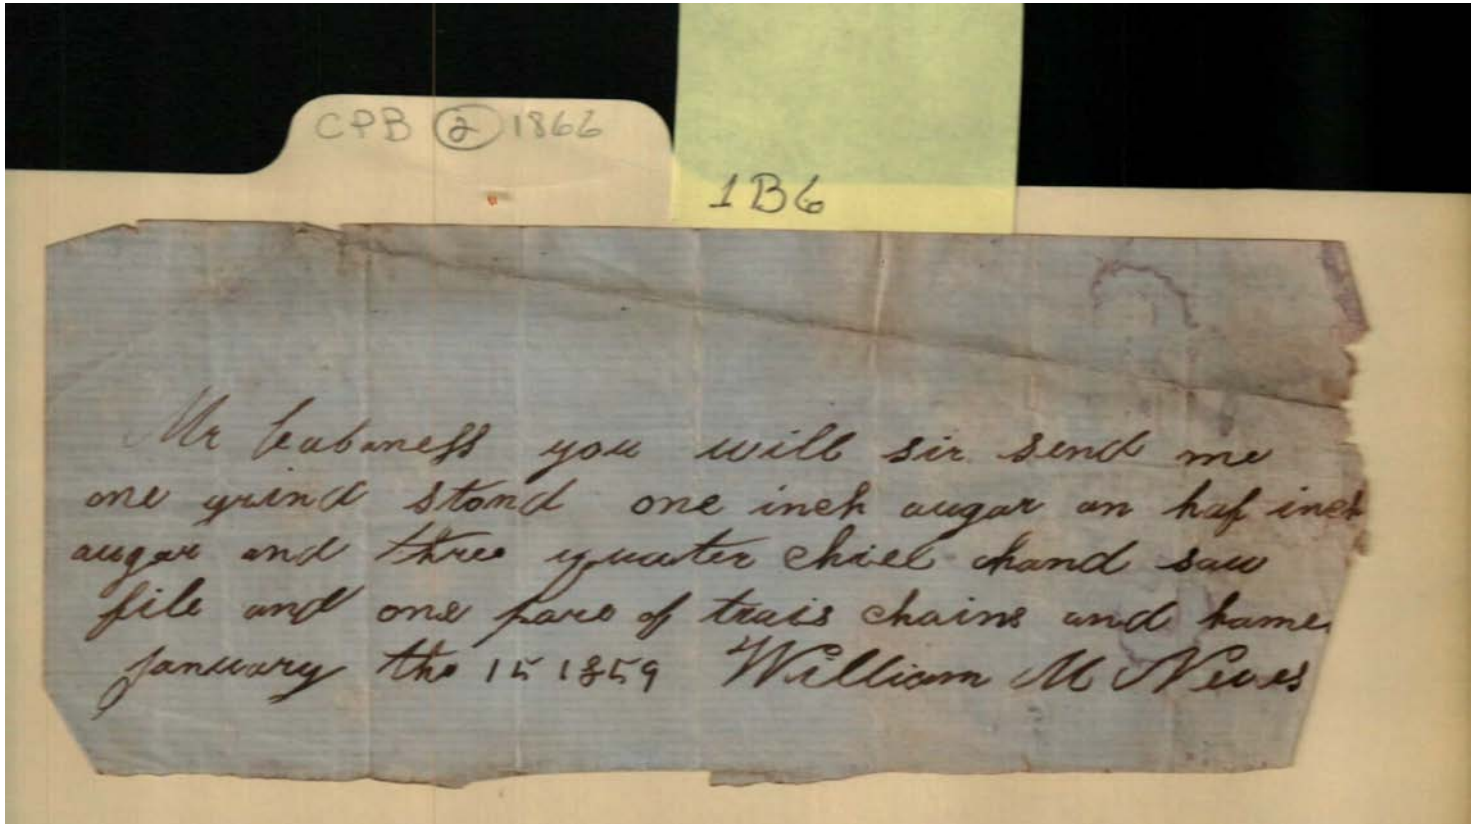 CPB 2 1866
1B6
Mr Cabaness you will sir send me
one grind stond one inch augar an haf inch
augar and three quater chiel hand saw
file and one pare of trais chains and hame
January the 15 1859 William M Neves